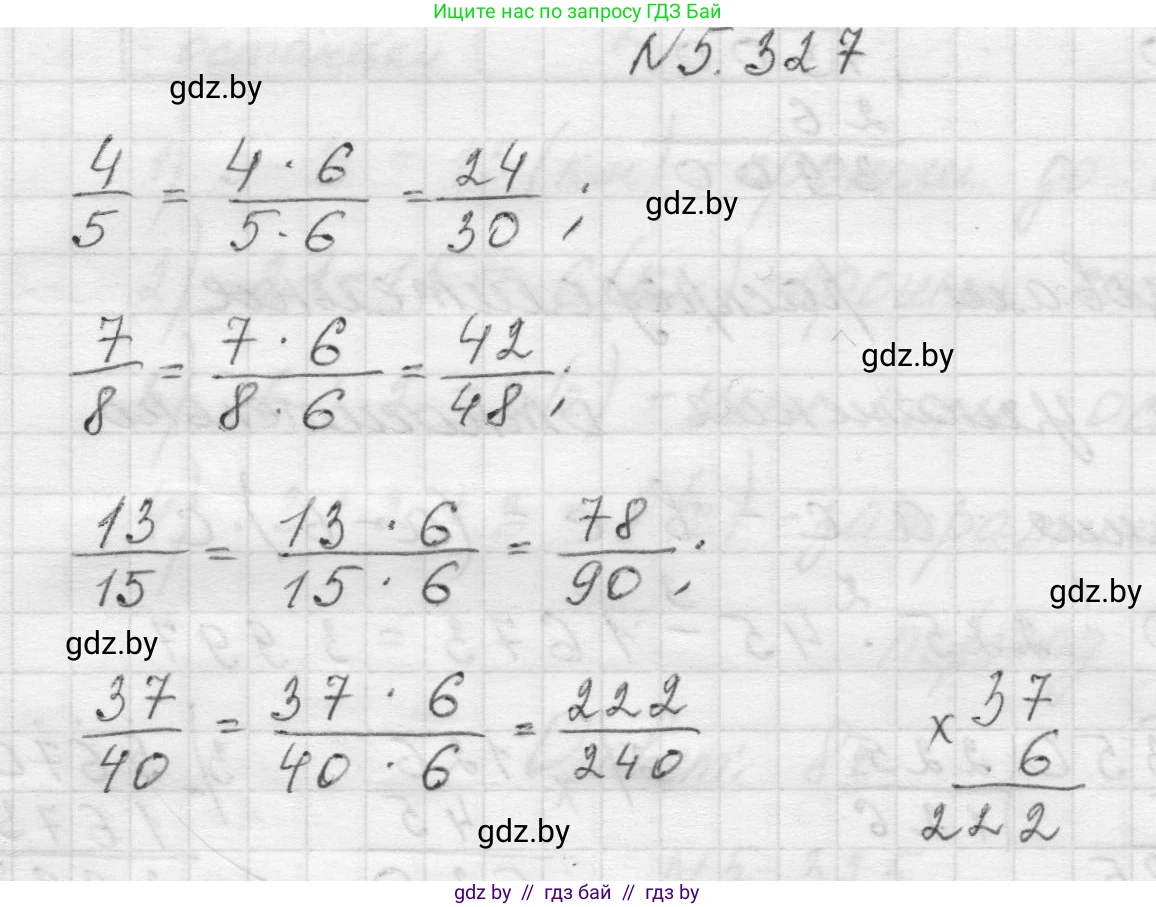 Ищите нас по запросу ГДЗ Бай
N 5. 327
gdz.by
4/5 = 4 · 6/5 · 6 = 24/30 ;
gdz.by
7/8 = 7 · 6/8 · 6 = 42/48 ;
gdz.by
13/15 = 13 · 6/15 · 6 = 78/90 ;
gdz.by
gdz.by
37/40 = 37 · 6/40 · 6 = 222/240
37
× 6
222
gdz.by
gdz by // гдз бай // гдз by